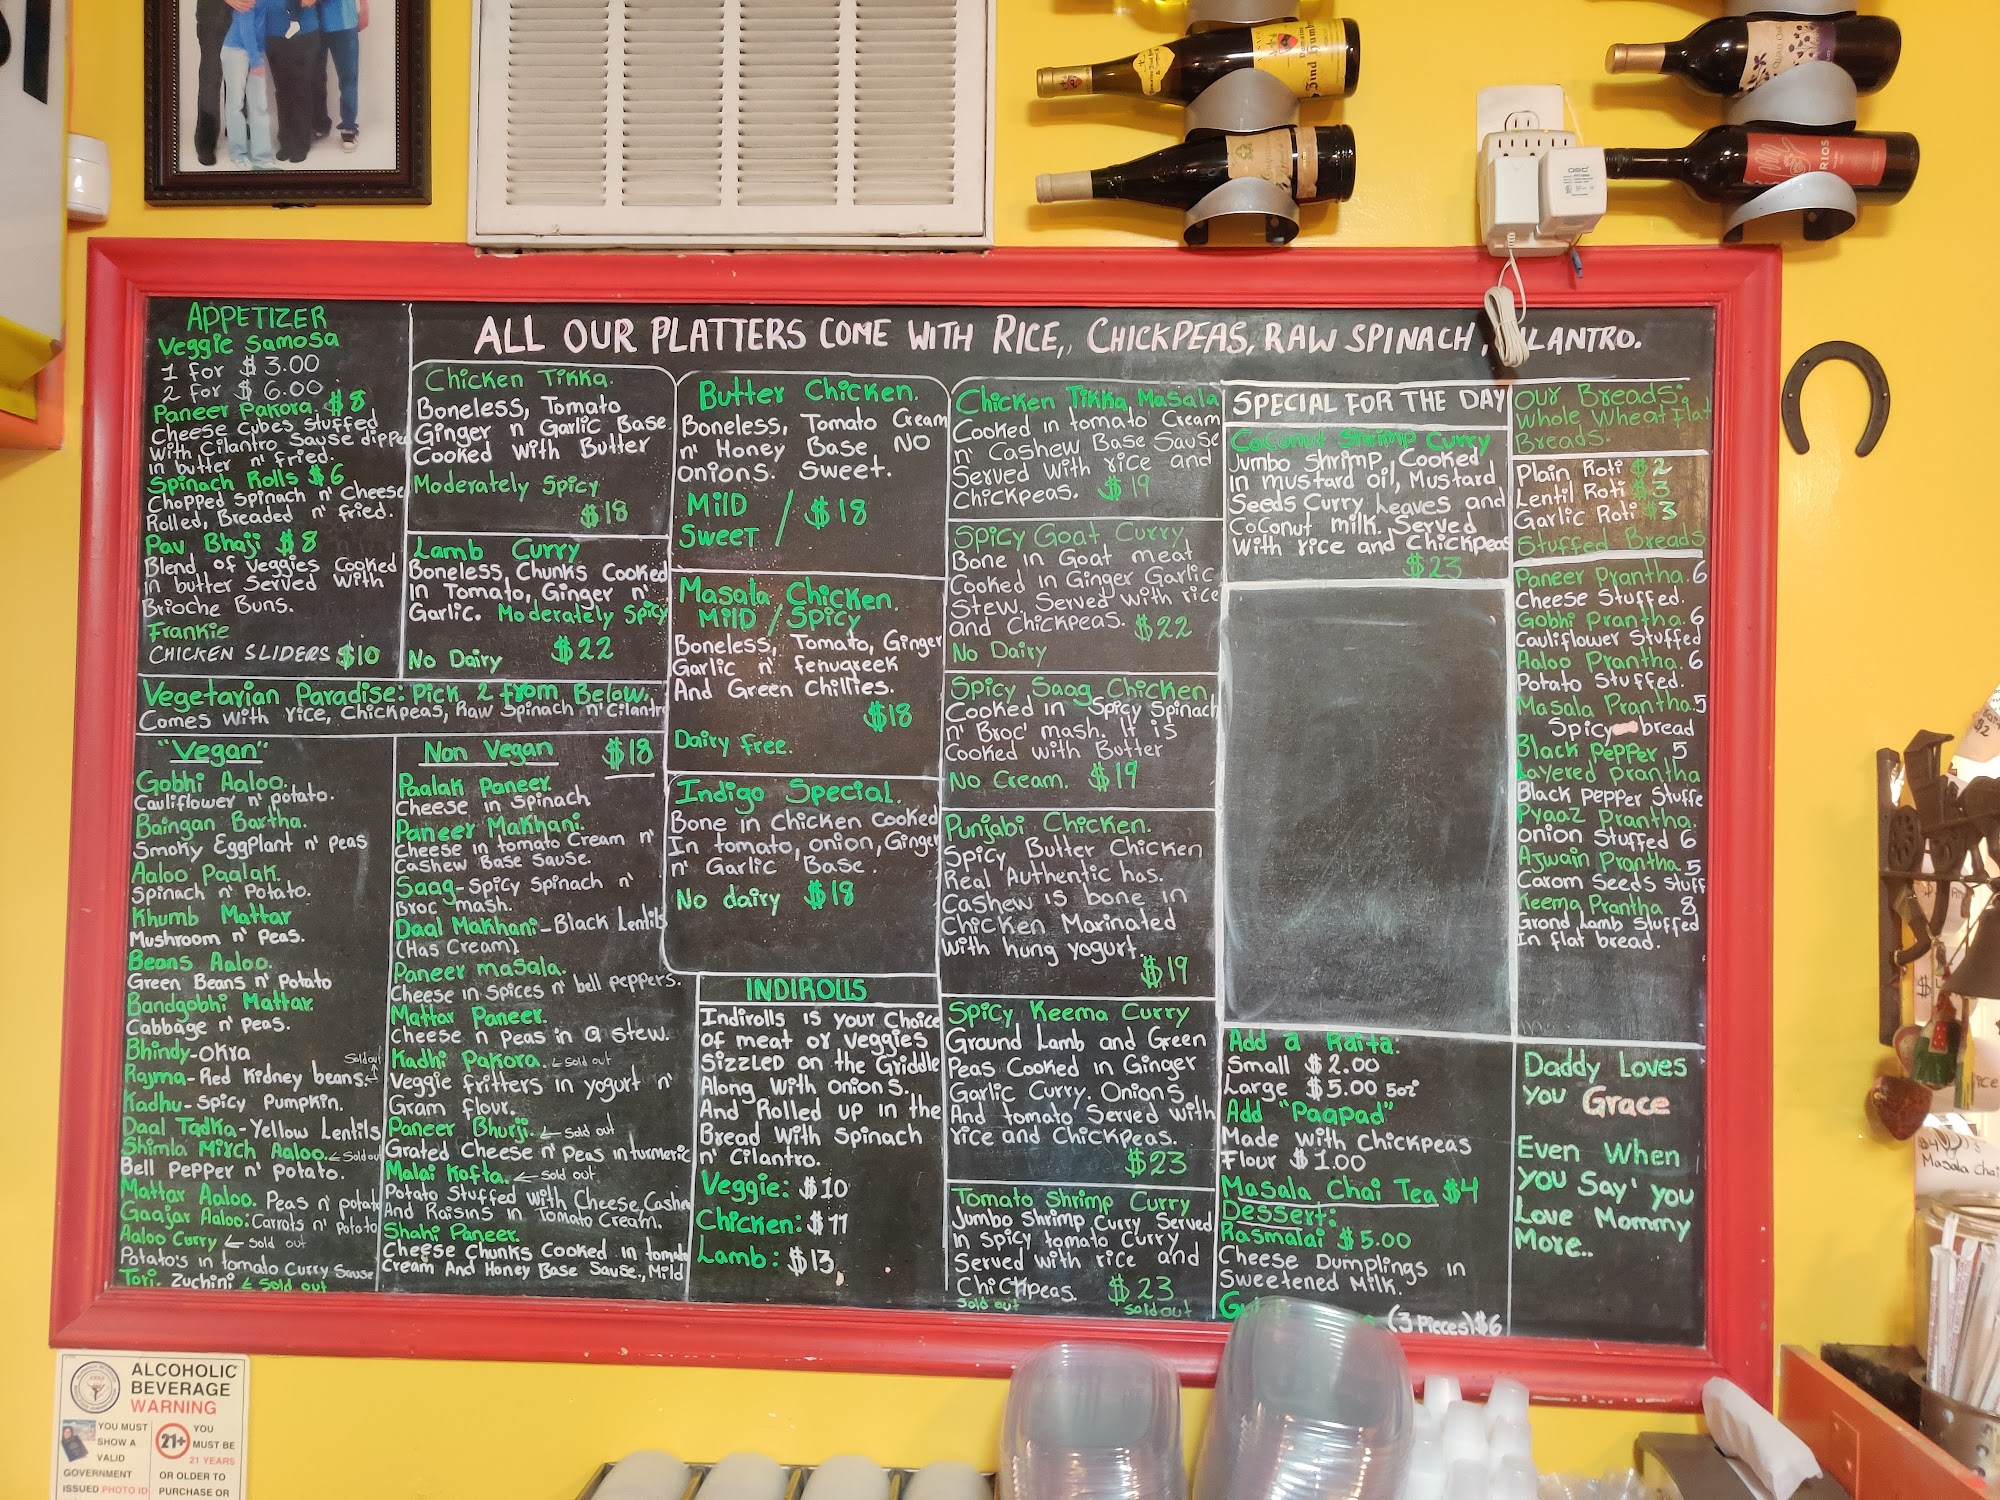 APPETIZER
Veggie Samosa
1 for $3.00
2 for $6.00
Paneer Pakora $8
Cheese Cubes stuffed
With Cilantro Sause dipped
In butter n' fried.
Spinach Rolls $6
Chopped Spinach n' Cheese
Rolled, Breaded n' fried.
Pav Bhaji $8
Blend of veggies Cooked
in butter Served With
Brioche Buns.
Frankie
CHICKEN SLIDERS $10
ALL OUR PLATTERS COME WITH RICE, CHICKPEAS, RAW SPINACH, CILANTRO.
Chicken Tikka.
Boneless, Tomato
Ginger n' Garlic Base
Cooked With Butter
Moderately Spicy
$18
Lamb Curry
Boneless Chunks Cooked
In Tomato, Ginger n'
Garlic. Moderately Spicy
No Dairy $22
Vegetarian Paradise: Pick 2 from Below.
Comes With rice, Chickpeas, Raw Spinach n' Cilantro
"Vegan"
Gobhi Aaloo.
Cauliflower n' potato.
Baingan Bartha.
Smoky Eggplant n' Peas
Aaloo Paalak.
Spinach n' Potato.
Khumb Mattar
Mushroom n' Peas.
Beans Aaloo.
Green Beans n' Potato
Bandgobhi Mattar.
Cabbage n' Peas.
Bhindy-Okra
Sold out
Rajma-Red Kidney beans.
Kadhu-Spicy Pumpkin.
Daal Tadka-Yellow Lentils
Shimla Mirch Aaloo. Sold out
Bell Pepper n' Potato.
Mattar Aaloo. Peas n' potato
Gaajar Aaloo: Carrots n' Potato
Aaloo Curry Sold out
Potato's in tomato Curry Sause
Tori. Zuchini Sold out
Non Vegan $18
Paalak Paneer.
Cheese in Spinach
Paneer Makhani.
Cheese in tomato Cream n'
Cashew Base Sause.
Saag-Spicy Spinach n'
Broc mash.
Daal Makhani-Black Lentils
(Has Cream)
Paneer masala.
Cheese in Spices n' bell peppers.
Mattar Paneer.
Cheese n Peas in a stew.
Kadhi Pakora. Sold out
Veggie fritters in yogurt n'
Gram flour.
Paneer Bhurji. Sold out
Grated Cheese n' Peas in turmeric
Malai Kofta. Sold out
Potato Stuffed with Cheese, Cashew
And Raisins in Tomato Cream.
Shahi Paneer.
Cheese Chunks Cooked in tomato
Cream And Honey Base Sause., Mild
Butter Chicken.
Boneless, Tomato Cream
n' Honey Base NO
onions. Sweet.
Mild / $18
Sweet
Masala Chicken.
Mild / Spicy
Boneless, Tomato, Ginger
Garlic n' fenugreek
And Green Chillies.
$18
Dairy free.
Indigo Special.
Bone in Chicken Cooked
In tomato, onion, Ginger
n' Garlic Base.
No dairy $18
INDIROLLS
Indirolls is your Choice
of meat or veggies
Sizzled on the Griddle
Along With onions.
And Rolled up in the
Bread With Spinach
n' Cilantro.
Veggie: $10
Chicken: $11
Lamb: $13
Chicken Tikka Masala
Cooked in tomato Cream
n' Cashew Base Sause
Served With rice and
Chickpeas. $19
Spicy Goat Curry
Bone in Goat meat
Cooked in Ginger Garlic
Stew. Served With rice
and Chickpeas. $22
No Dairy
Spicy Saag Chicken
Cooked in Spicy Spinach
n' Broc' mash. It is
Cooked with Butter
No Cream. $19
Punjabi Chicken.
Spicy Butter Chicken
Real Authentic has.
Cashew is bone in
Chicken Marinated
With hung yogurt.
$19
Spicy Keema Curry
Ground Lamb and Green
Peas Cooked in Ginger
Garlic Curry. Onions
And tomato Served With
rice and Chickpeas.
$23
Tomato Shrimp Curry
Jumbo Shrimp Curry Served
In Spicy tomato Curry
Served With rice and
Chickpeas. $23
Sold out Sold out
SPECIAL FOR THE DAY
Coconut Shrimp Curry
Jumbo Shrimp Cooked
In mustard oil, Mustard
Seeds Curry Leaves and
Coconut milk. Served
With rice and Chickpeas
$23
Add a Raita.
Small $2.00
Large $5.00 5oz
Add "Paapad"
Made with Chickpeas
Flour $1.00
Masala Chai Tea $4
Dessert:
Rasmalai $5.00
Cheese Dumplings in
Sweetened Milk.
(3 Pieces) $6
Our Breads:
Whole Wheat Flat
Breads.
Plain Roti $2
Lentil Roti $3
Garlic Roti $3
Stuffed Breads
Paneer Prantha. 6
Cheese Stuffed.
Gobhi Prantha. 6
Cauliflower Stuffed
Aaloo Prantha. 6
Potato Stuffed.
Masala Prantha. 5
Spicy bread
Black Pepper 5
Layered Prantha
Black Pepper Stuffe
Pyaaz Prantha.
Onion Stuffed 6
Ajwain Prantha 5
Carom Seeds Stuff
Keema Prantha 8
Grond Lamb Stuffed
In flat bread.
Daddy Loves
you Grace
Even When
you Say' you
Love Mommy
More..
ALCOHOLIC
BEVERAGE
WARNING
YOU MUST
SHOW A
VALID
GOVERNMENT
ISSUED PHOTO ID
21+
YOU
MUST BE
21 YEARS
OR OLDER TO
PURCHASE OR
Masala Chai